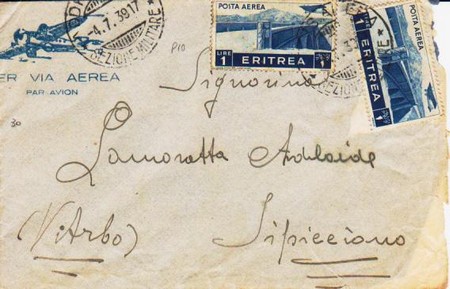 4.7.39 17
SEZIONE MILITARE
P10
POSTA AEREA
LIRE 1
ERITREA
POSTA AEREA
ERITREA
ER VIA AEREA
PAR AVION
30
Signorina
Lamoratta Adelaide
(Viterbo) Sipicciano